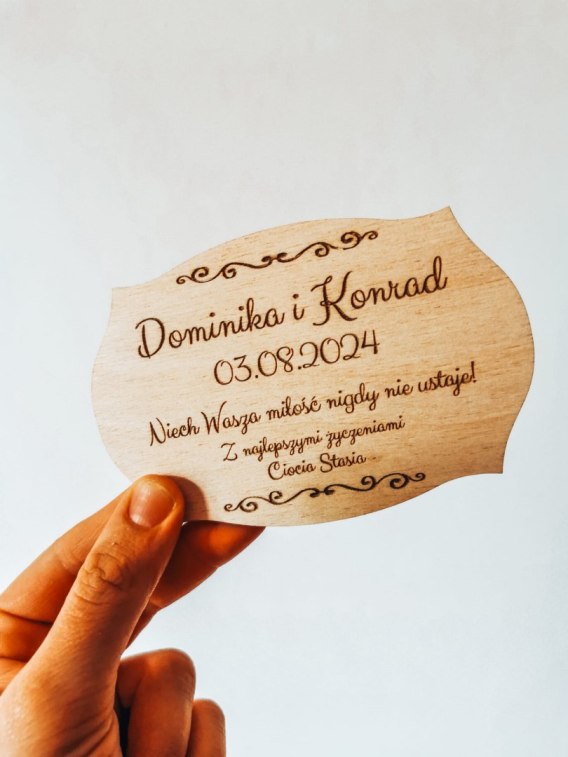 Dominika i Konrad
03.08.2024
Niech Wasza miłość nigdy nie ustaje!
Z najlepszymi życzeniami
Ciocia Stasia